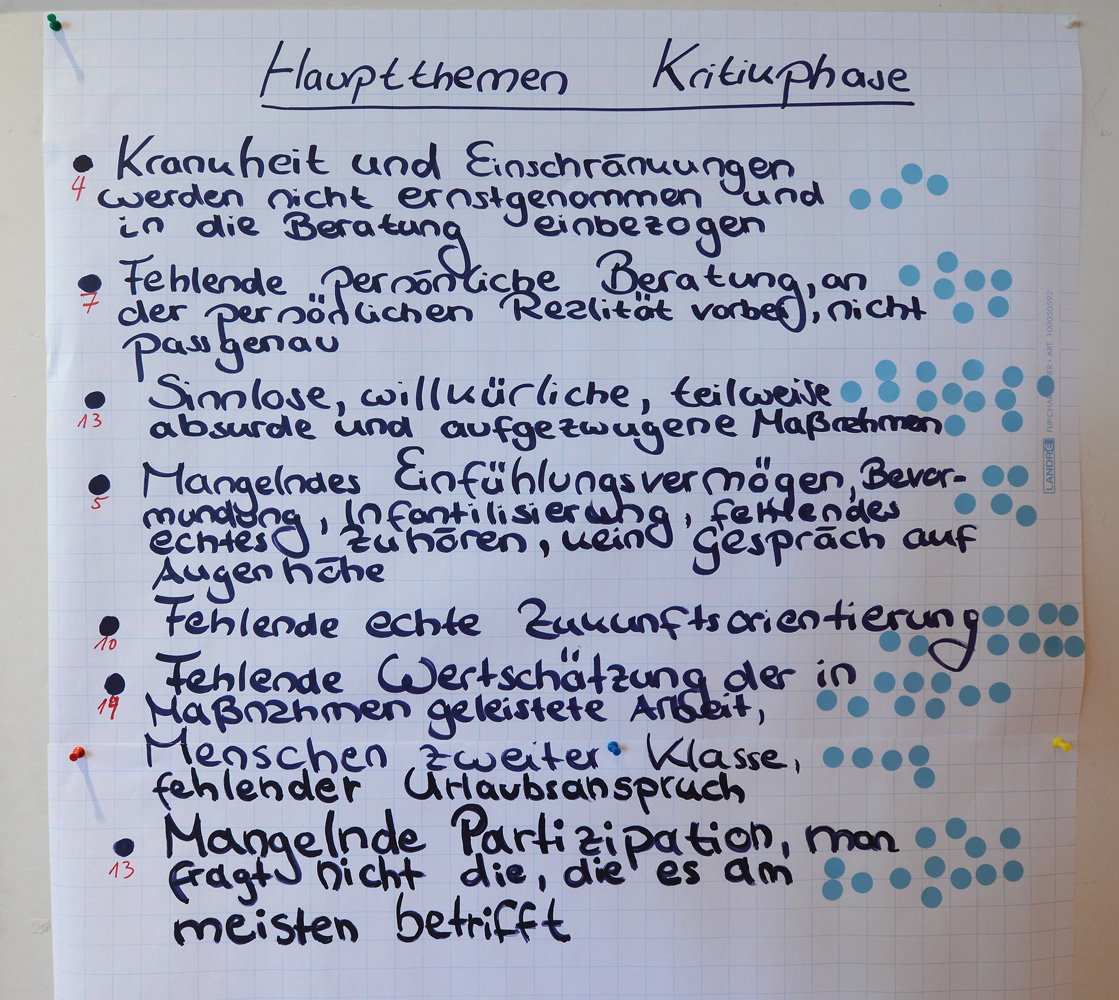 Hauptthemen Kritikphase
Krankheit und Einschränkungen
4
werden nicht ernstgenommen und
in die Beratung einbezogen
Fehlende persönliche Beratung, an
7
der persönlichen Realität vorbei, nicht
passgenau
Sinnlose, willkürliche, teilweise
13
absurde und aufgezwugene Maßnahmen
Mangelndes Einfühlungsvermögen, Bevor-
5
mundung, Infantilisierung, fehlendes
echtes Zuhören, kein Gespräch auf
Augenhöhe
Fehlende echte Zukunftsorientierung
10
Fehlende Wertschätzung der in
14
Maßnahmen geleistete Arbeit,
Menschen zweiter Klasse,
fehlender Urlaubsanspruch
Mangelnde Partizipation, man
13
fragt nicht die, die es am
meisten betrifft
LANDRÉ ART. 100050592